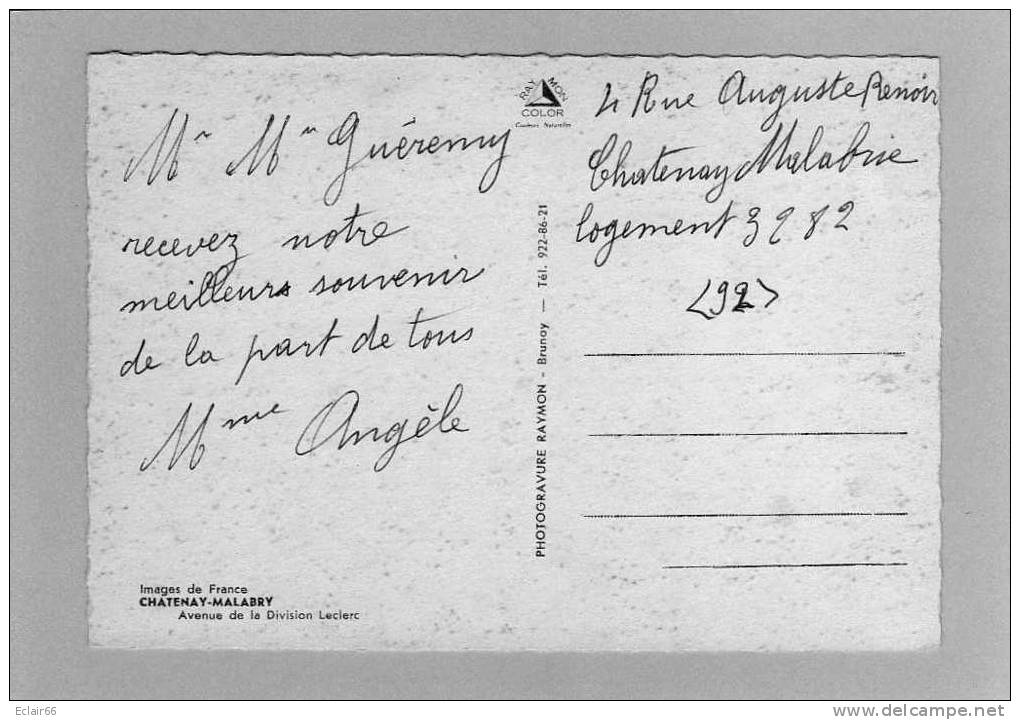 Mr Mm Guéremy
recevez notre
meilleurs souvenir
de la part de tous
Mme Angèle
Images de France
CHATENAY-MALABRY
Avenue de la Division Leclerc
RAYMON
COLOR
Couleurs Naturelles
PHOTOGRAVURE RAYMON - Brunoy — Tél. 922-86-21
4 Rue Auguste Renoir
Chatenay Malabrie
logement 3982
(92)
Eclair66
www.delcampe.net